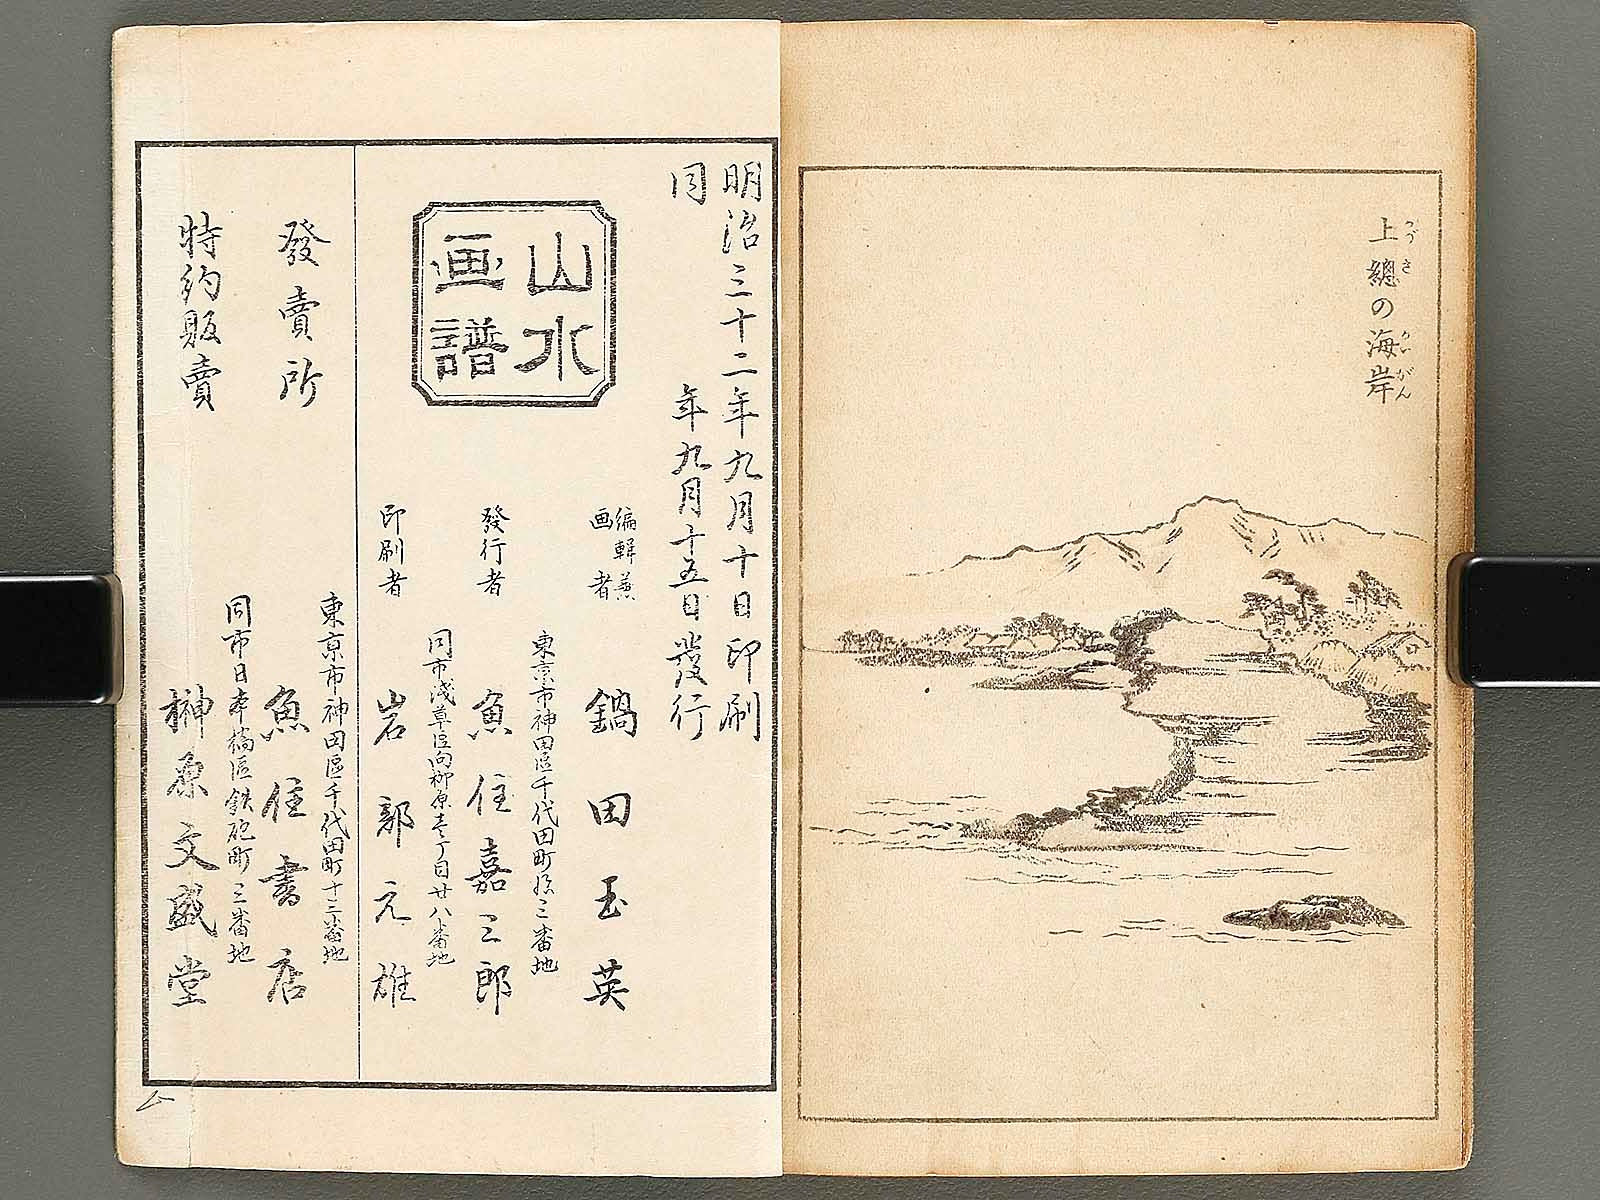 上總の海岸
かづさ かいがん
明治三十二年九月十日印刷
同 年九月十五日發行
山水
画譜
編輯兼
画者
東京市神田區千代田町拾三番地
鍋田玉英
發行者
魚住嘉三郎
同市浅草區向柳原壱丁目廿八番地
印刷者
岩郭元雄
發賣所
東京市神田區千代田町十三番地
魚住書店
特約販賣
同市日本橋區鉄砲町三番地
榊原文盛堂